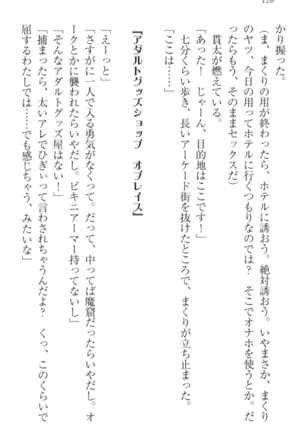 126
かり握った。
(ま、まくりの用が終わったら、ホテルに誘おう。絶対誘う。いやまさか、まくり
のヤツ、今日の用ってホテルに行くつもりなのでは? そこでオナホを使うとか。だ
ったらもう、そのままセックスだ)
貫太が燃えている。
「あった! じゃーん、目的地はここです!」
七分くらい歩き、長いアーケード街を抜けたところで、まくりが立ち止まった。
「ここは……」
『アダルトグッズショップ オブレイス』
「えーっと」
「さすがに一人で入る勇気がなくって。だって、中ってば魔窟だったらいやだし。オ
ークとかに襲われたらいやだし。ビキニアーマー持ってないし」
「そんなアダルトグッズ屋はない!」
「捕まったら、太いアレでひぎぃって言わされちゃうんだよ? くっ、このくらいで
屈するわたしでは……でも感じちゃう、みたいな」